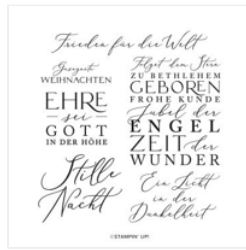 Frieden für die Welt
Gesegnete
WEIHNACHTEN
EHRE
sei
GOTT
IN DER HÖHE
Stille
Nacht
Folget dem Stern
ZU BETHLEHEM
GEBOREN
FROHE KUNDE
Jubel der
ENGEL
ZEIT der
WUNDER
Ein Licht
in der
Dunkelheit
©STAMPIN' UP!